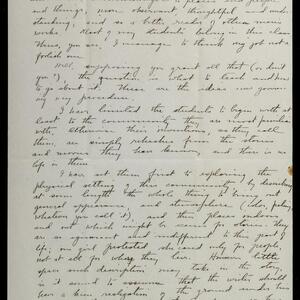 and things, more observant thoughtful and under-
standing, and so a better reader of others more
works. Most of my students belong in this class
Thus, you see, I manage to think my job not a
foolish one.
Well, supposing you grant all that (or don't
you?), the question is what to teach and how
to go about it. These are the ideas now govern-
ing my procedure.
I have limited the students to begin with at
least to the community they are most familiar
with, otherwise their inventions, as they call
them, are simply rehashes from the stories
and movies they have, and there is no
life in them.
I have set them first to exploring the
physical setting of this community by describing
at some length the whole thing, its
general appearance, and atmosphere (color, feeling,
whatever you call it), and then places indoors
and out which might be scenes for stories. They
are so ignorant and indifferent to this part of
life; one girl protested she cared only for people,
not at all for where they live. However little
space such description may take in the story,
it is sound to assume that the writer should
have a keen realization of the ground under his